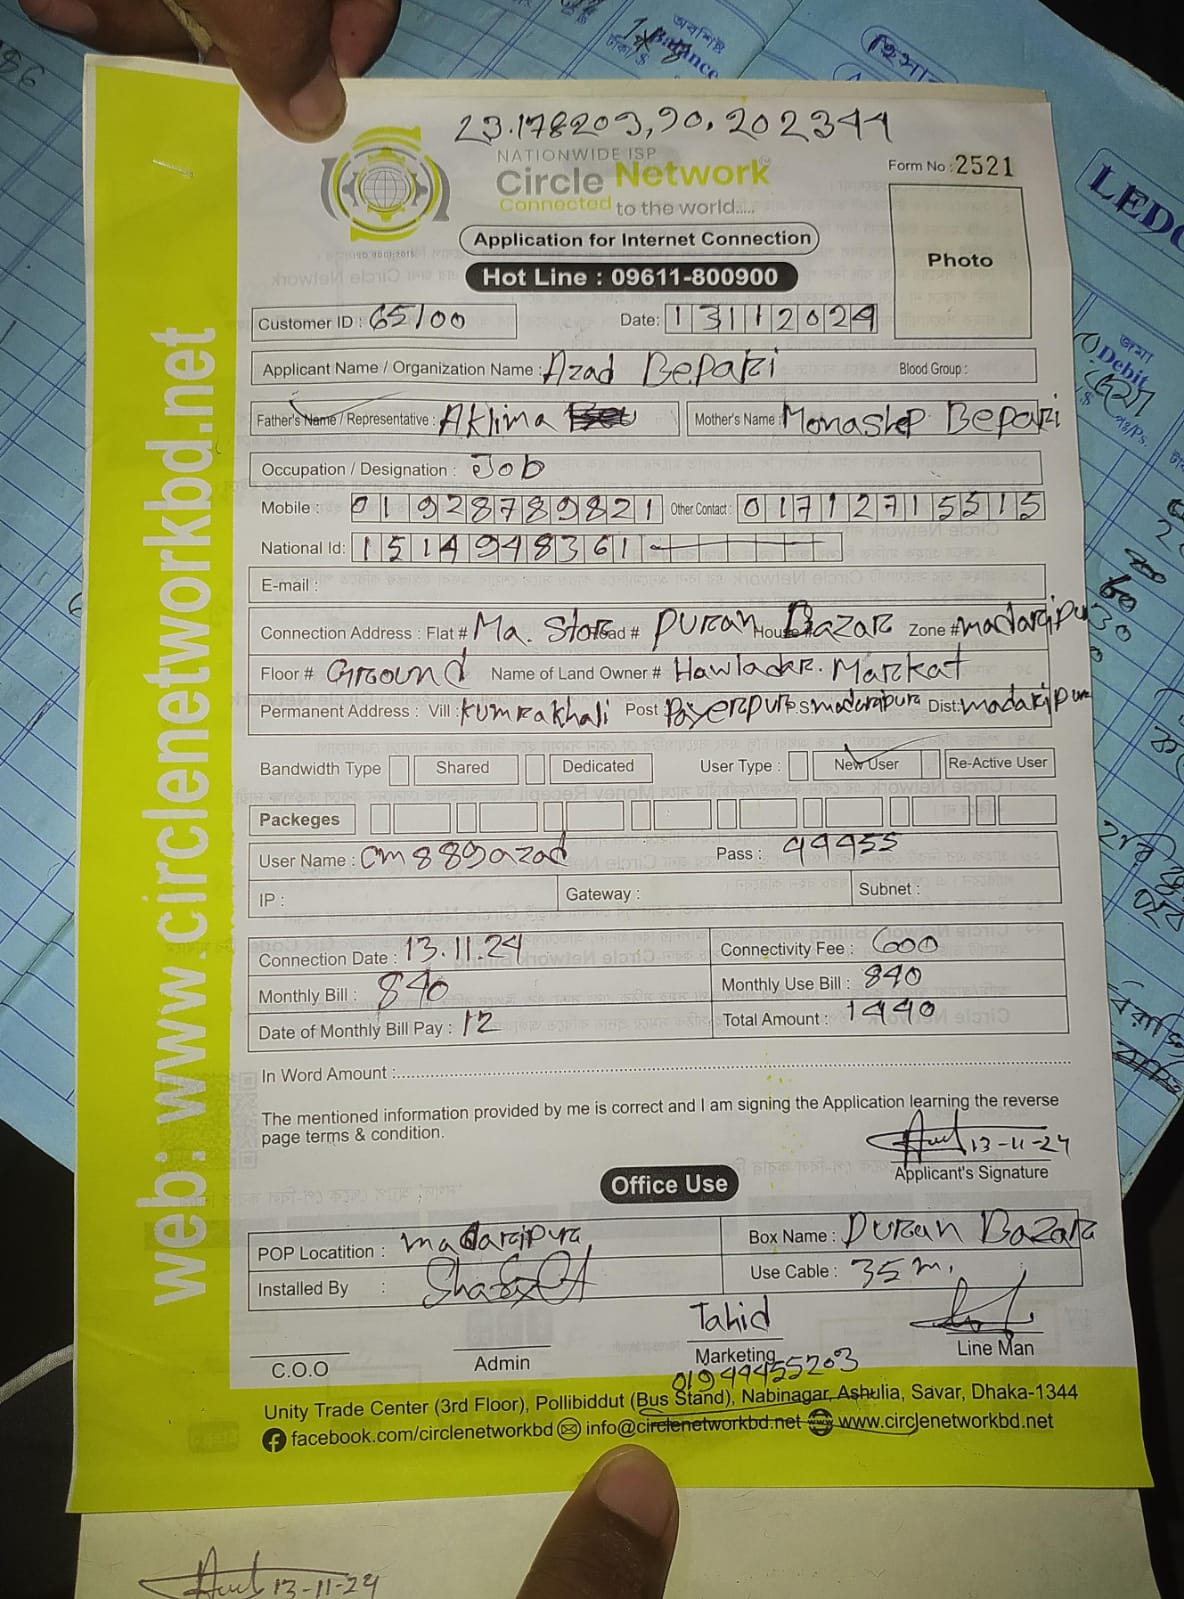 23.178203,90.202344
NATIONWIDE ISP
Circle Network
Connected to the world.....
Form No : 2521
Application for Internet Connection
Photo
Hot Line : 09611-800900
Customer ID : 65100 Date: 13112024
Applicant Name / Organization Name : Azad Bepari Blood Group :
Father's Name / Representative : Aklima Mother's Name : Monastep Bepari
Occupation / Designation : Job
Mobile : 01928789821 Other Contact : 01712715515
National Id: 1514948361
E-mail :
Connection Address : Flat # Ma. Stor Road # PURAN House # Bazar Zone # madaripur
Floor # Ground Name of Land Owner # Hawladar. Markat
Permanent Address : Vill : Kumrakhali Post Payerpur P.S madaripura Dist: madaripure
Bandwidth Type Shared Dedicated User Type : New User Re-Active User
Packeges
User Name : cm889azad Pass : 44455
IP : Gateway : Subnet :
Connection Date : 13.11.24 Connectivity Fee : 600
Monthly Bill : 840 Monthly Use Bill : 840
Date of Monthly Bill Pay : 12 Total Amount : 1440
In Word Amount :
The mentioned information provided by me is correct and I am signing the Application learning the reverse
page terms & condition.
13-11-24
Applicant's Signature
Office Use
POP Locatition : madaripura Box Name : Puran Bazar
Installed By : Use Cable : 35 m.
Tahid
C.O.O Admin Marketing Line Man
01944455203
Unity Trade Center (3rd Floor), Pollibiddut (Bus Stand), Nabinagar, Ashulia, Savar, Dhaka-1344
facebook.com/circlenetworkbd info@circlenetworkbd.net www.circlenetworkbd.net
web: www.circlenetworkbd.net
13-11-24
LEDG
Debit
Balance
অবশিষ্ট
জমা